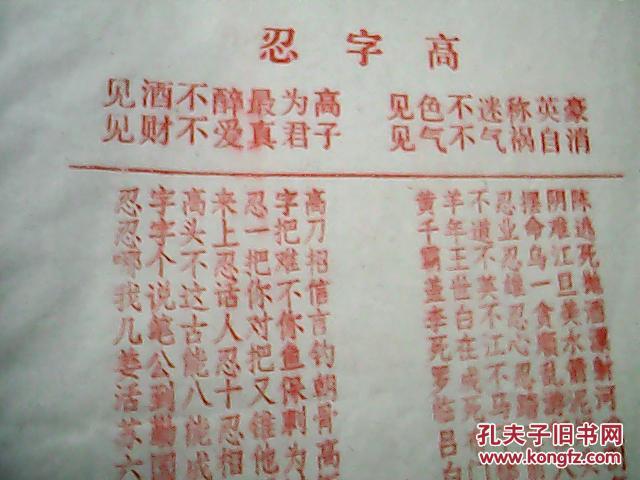 忍字高
见酒不醉最为高 见色不迷称英豪
见财不爱真君子 见气不气祸自消
忍字高来忍字高
忍字头上一把刀
哪个不忍把难招
我说这话你不信
几笔古人对你言
姜公能忍把鱼钓
活到八十又保朝
苏勤能忍锥刺骨
六国成相他为高
黄羊不忍摆阴陈
千年道业命难逃
霸王不忍乌江死
盖世英雄一旦抛
李白不忍贪美酒
死在江心顺水漂
罗成不忍乱箭射
临死马踏淤泥河
吕
白门
孔夫子旧书网
www.kongfz.com